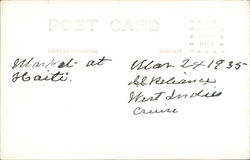 POST CARD
CORRESPONDENCE
ADDRESS
PLACE
STAMP
HERE
Market at
Haiti.
Mar. 24 1935
SS Reliance
West Indies
Cruise